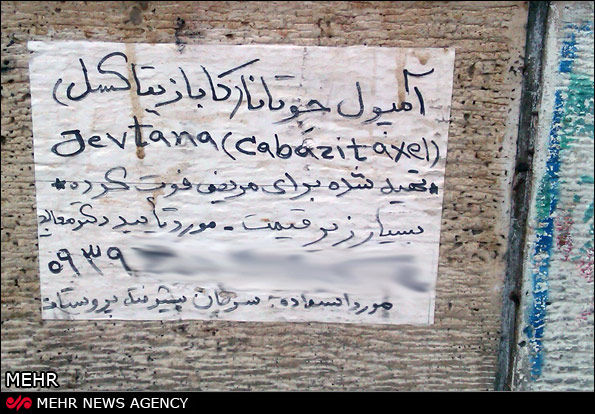 آمپول جوتانا (کابازیتاکسل)
Jevtana (cabazitaxel)
*تهیه شده برای مریض فوت کرده*
بسیار زیر قیمت - مورد تأیید دکتر معالج
۰۹۳۹
مورد استفاده: سرطان پیشرفته پروستات
MEHR
MEHR NEWS AGENCY